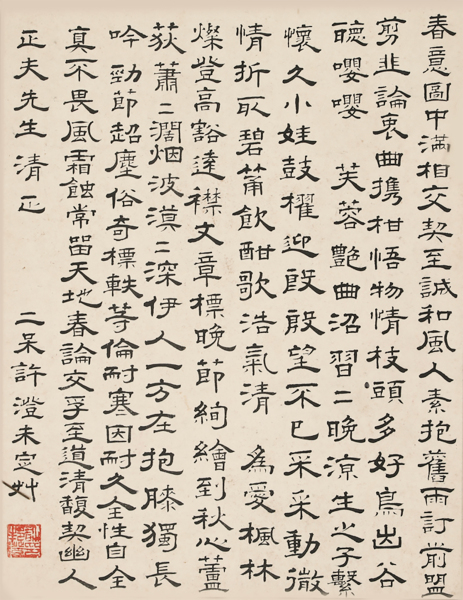 春意圖中滿相交契至誠和風人素抱舊雨訂前盟
剪韭論衷曲携柑悟物情枝頭多好鳥出谷
聽嚶嚶 芙蓉艷曲沼習二晚涼生之子繫
懷久小娃鼓櫂迎殷殷望不已采采動微
情折取碧筩飲酣歌浩氣清 為愛楓林
燦登高豁達襟文章標晚節絢繪到秋心蘆
荻蕭二濶烟波漠二深伊人一方在抱膝獨長
吟勁節超塵俗奇標軼等倫耐寒因耐久全性自全
真不畏風霜蝕常留天地春論交孚至道清馥契幽人
正夫先生清正 二呆許澄未定艸